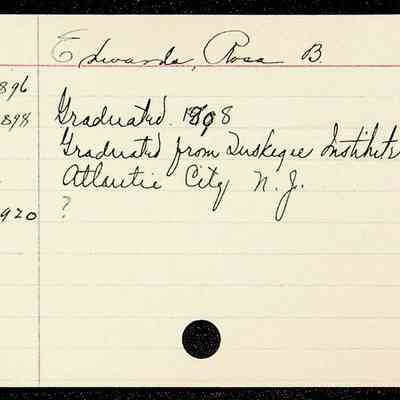 Edwards, Rosa B.
896
898 Graduated 1898
Graduated from Tuskegee Institute
Atlantic City N. J.
920 ?